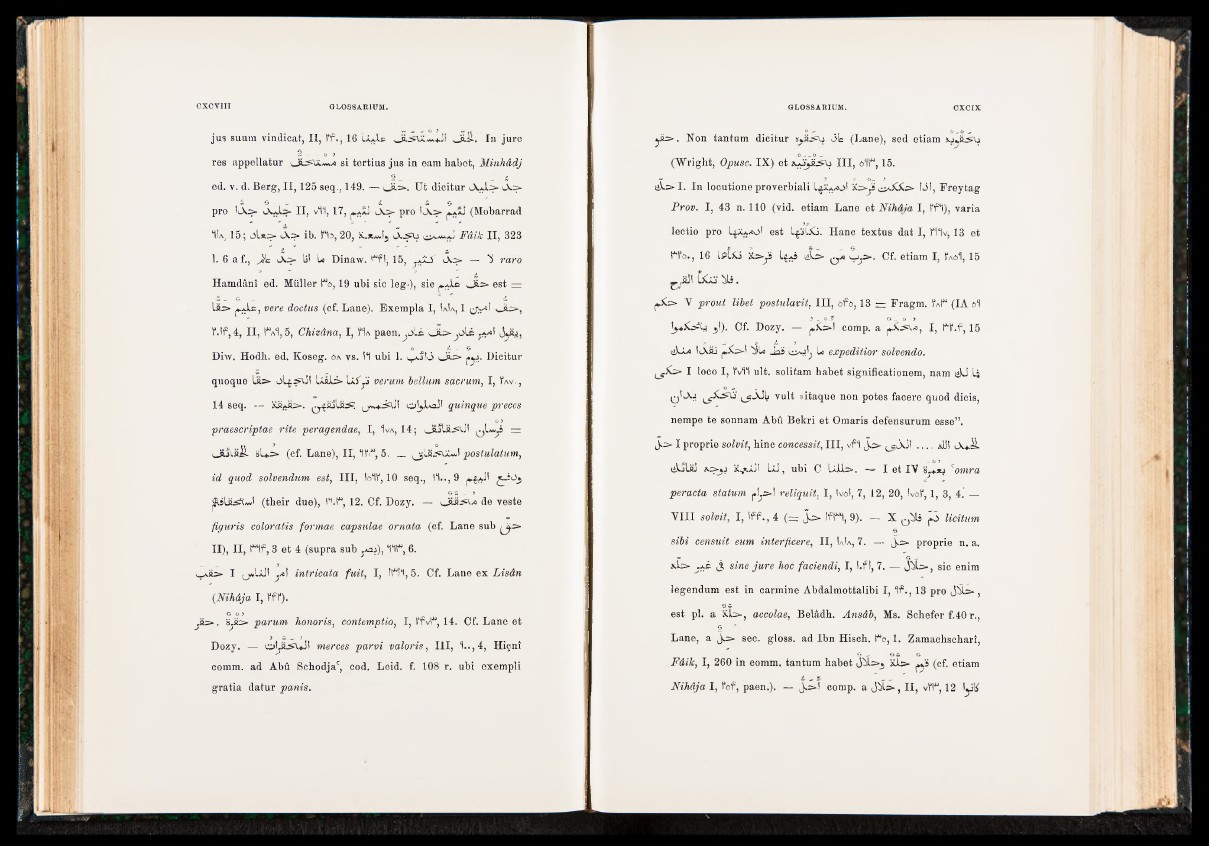 CXCVIII GLOSSARIUM.
jus suum vindicat, II, ٢٤٠, 16 علينا المستحق الحق. In jure
res appellatur مستحق si tertius jus in eam habet, Minhâdj
ed. v. d. Berg, II, 125 seq., 149. — حق. Ut dicitur جد جليد
pro جليد جدا II, ٧٦١, 17, لئيم جد pro لئيم جدا (Mobarrad
٦١٨, 15; جد جهاد ib. ٢٦٥, 20, Fâik II, 323
l. 6 a f., ما انا جد Dinaw. ٣٤١, 15, — جد raro
Hamdânî ed. Müller ٣٥, 19 ubi sic leg.), sic عليم حق est =
عليم حقا, vere doctus (cf. Lane). Exempla I, ١٨١٨, 1 حق امين,
٢٠١٤, 4, II, ٣٨٦, 5, Chizâna, I, ٢٦٨ paen. يقول امير غادر حق غادر,
Diw. Hodh. ed. Koseg. ٥٨ vs. ١٦ ubi l. يوم حق. Dicitur
quoque حقا verum bellum sacrum, I, ٢٨٧٠,
14 seq. — حقيقة. الصلوات الخمس بحقائقهن quinque preces
praescriptae rite peragendae, I, ٦٧٨, 14; فرسان الحقائق =
حماة الحقائق (cf. Lane), II, ٦٢٣, 5. — استحقاق postulatum,
id quod solvendum est, III, ١٥٦٢, 10 seq., ١٦٠٠, 9 ودفع اليهم
استحقاقهم (their due), ١٦٠٣, 12. Cf. Dozy. — محقق de veste
figuris coloratis formae capsulae ornata (cf. Lane sub حق
II), II, ٣٦٤, 3 et 4 (supra sub بصر), ٦٦٣, 6.
حقب I امر الناس intricata fuit, I, ١٣٦٦, 5. Cf. Lane ex Lisân
(Nihâja I, ٢٤٢).
حقر. حقرة parum honoris, contemptio, I, ٢٤٧٣, 14. Cf. Lane et
Dozy. — المحقرات merces parvi valoris, III, ٦٠٠, 4, Hiçnî
comm. ad Abû Schodjaʿ, cod. Leid. f. 108 r. ubi exempli
gratia datur panis.
GLOSSARIUM. CXCIX
حقو. Non tantum dicitur عاذ بحقوه (Lane), sed etiam بحقويه
(Wright, Opusc. IX) et بحقويه III, ٥٦٣, 15.
حك I. In locutione proverbiali اذا حككت قرحة ادميتها, Freytag
Prov. I, 43 n. 110 (vid. etiam Lane et Nihâja I, ٢٤٦), varia
lectio pro ادميتها est نكأتها. Hanc textus dat I, ٢٦٦٧, 13 et
٣٢٥٠, 16 حرب من حك فيها قرحة نكأها. Cf. etiam I, ٢٨٥٦, 15
فلا تنكأ القرح.
حكم V prout libet postulavit, III, ٥٤٥, 13 = Fragm. ٢٨٣ (IA ٥٦
او يتحكموا). Cf. Dozy. — احكم comp. a محكم, I, ٣٢٠٤, 15
ما رايت قط مالا احكم نقدا منك expeditior solvendo.
حكى I loco I, ٢٧٦٦ ult. solitam habet significationem, nam لك يا
بالذي تحكي بدان vult „itaque non potes facere quod dicis,
nempe te sonnam Abû Bekri et Omaris defensurum esse”.
حل I proprie solvit, hinc concessit, III, ٧٤٦ الحمد لله .... الذي حل
لنا الميتة يوم لقائك, ubi C حلنا. — I et IV بعمرة ʿomra
peracta statum احرام reliquit, I, ١٧٥١, 7, 12, 20, ١٧٥٢, 1, 3, 4. —
VIII solvit, I, ١٤٤٠, 4 (= حل ١٤٣٦, 9). — X دم فلان licitum
sibi censuit eum interficere, II, ١٨١٨, 7. — حل proprie n. a.
في غير حله sine jure hoc faciendi, I, ١٠٤١, 7. — حلال, sic enim
legendum est in carmine Abdalmottalibi I, ٩٤٠, 13 pro حلال,
est pl. a حلة, accolae, Belâdh. Ansâb, Ms. Schefer f.40 r.,
Lane, a حل sec. gloss. ad Ibn Hisch. ٣٥, 1. Zamachscharî,
Fâik, I, 260 in comm. tantum habet قوم حلة وحلال (cf. etiam
Nihâja I, ٢٥٤, paen.). — احل comp. a حلال, II, ٧٢٣, 12 كانوا